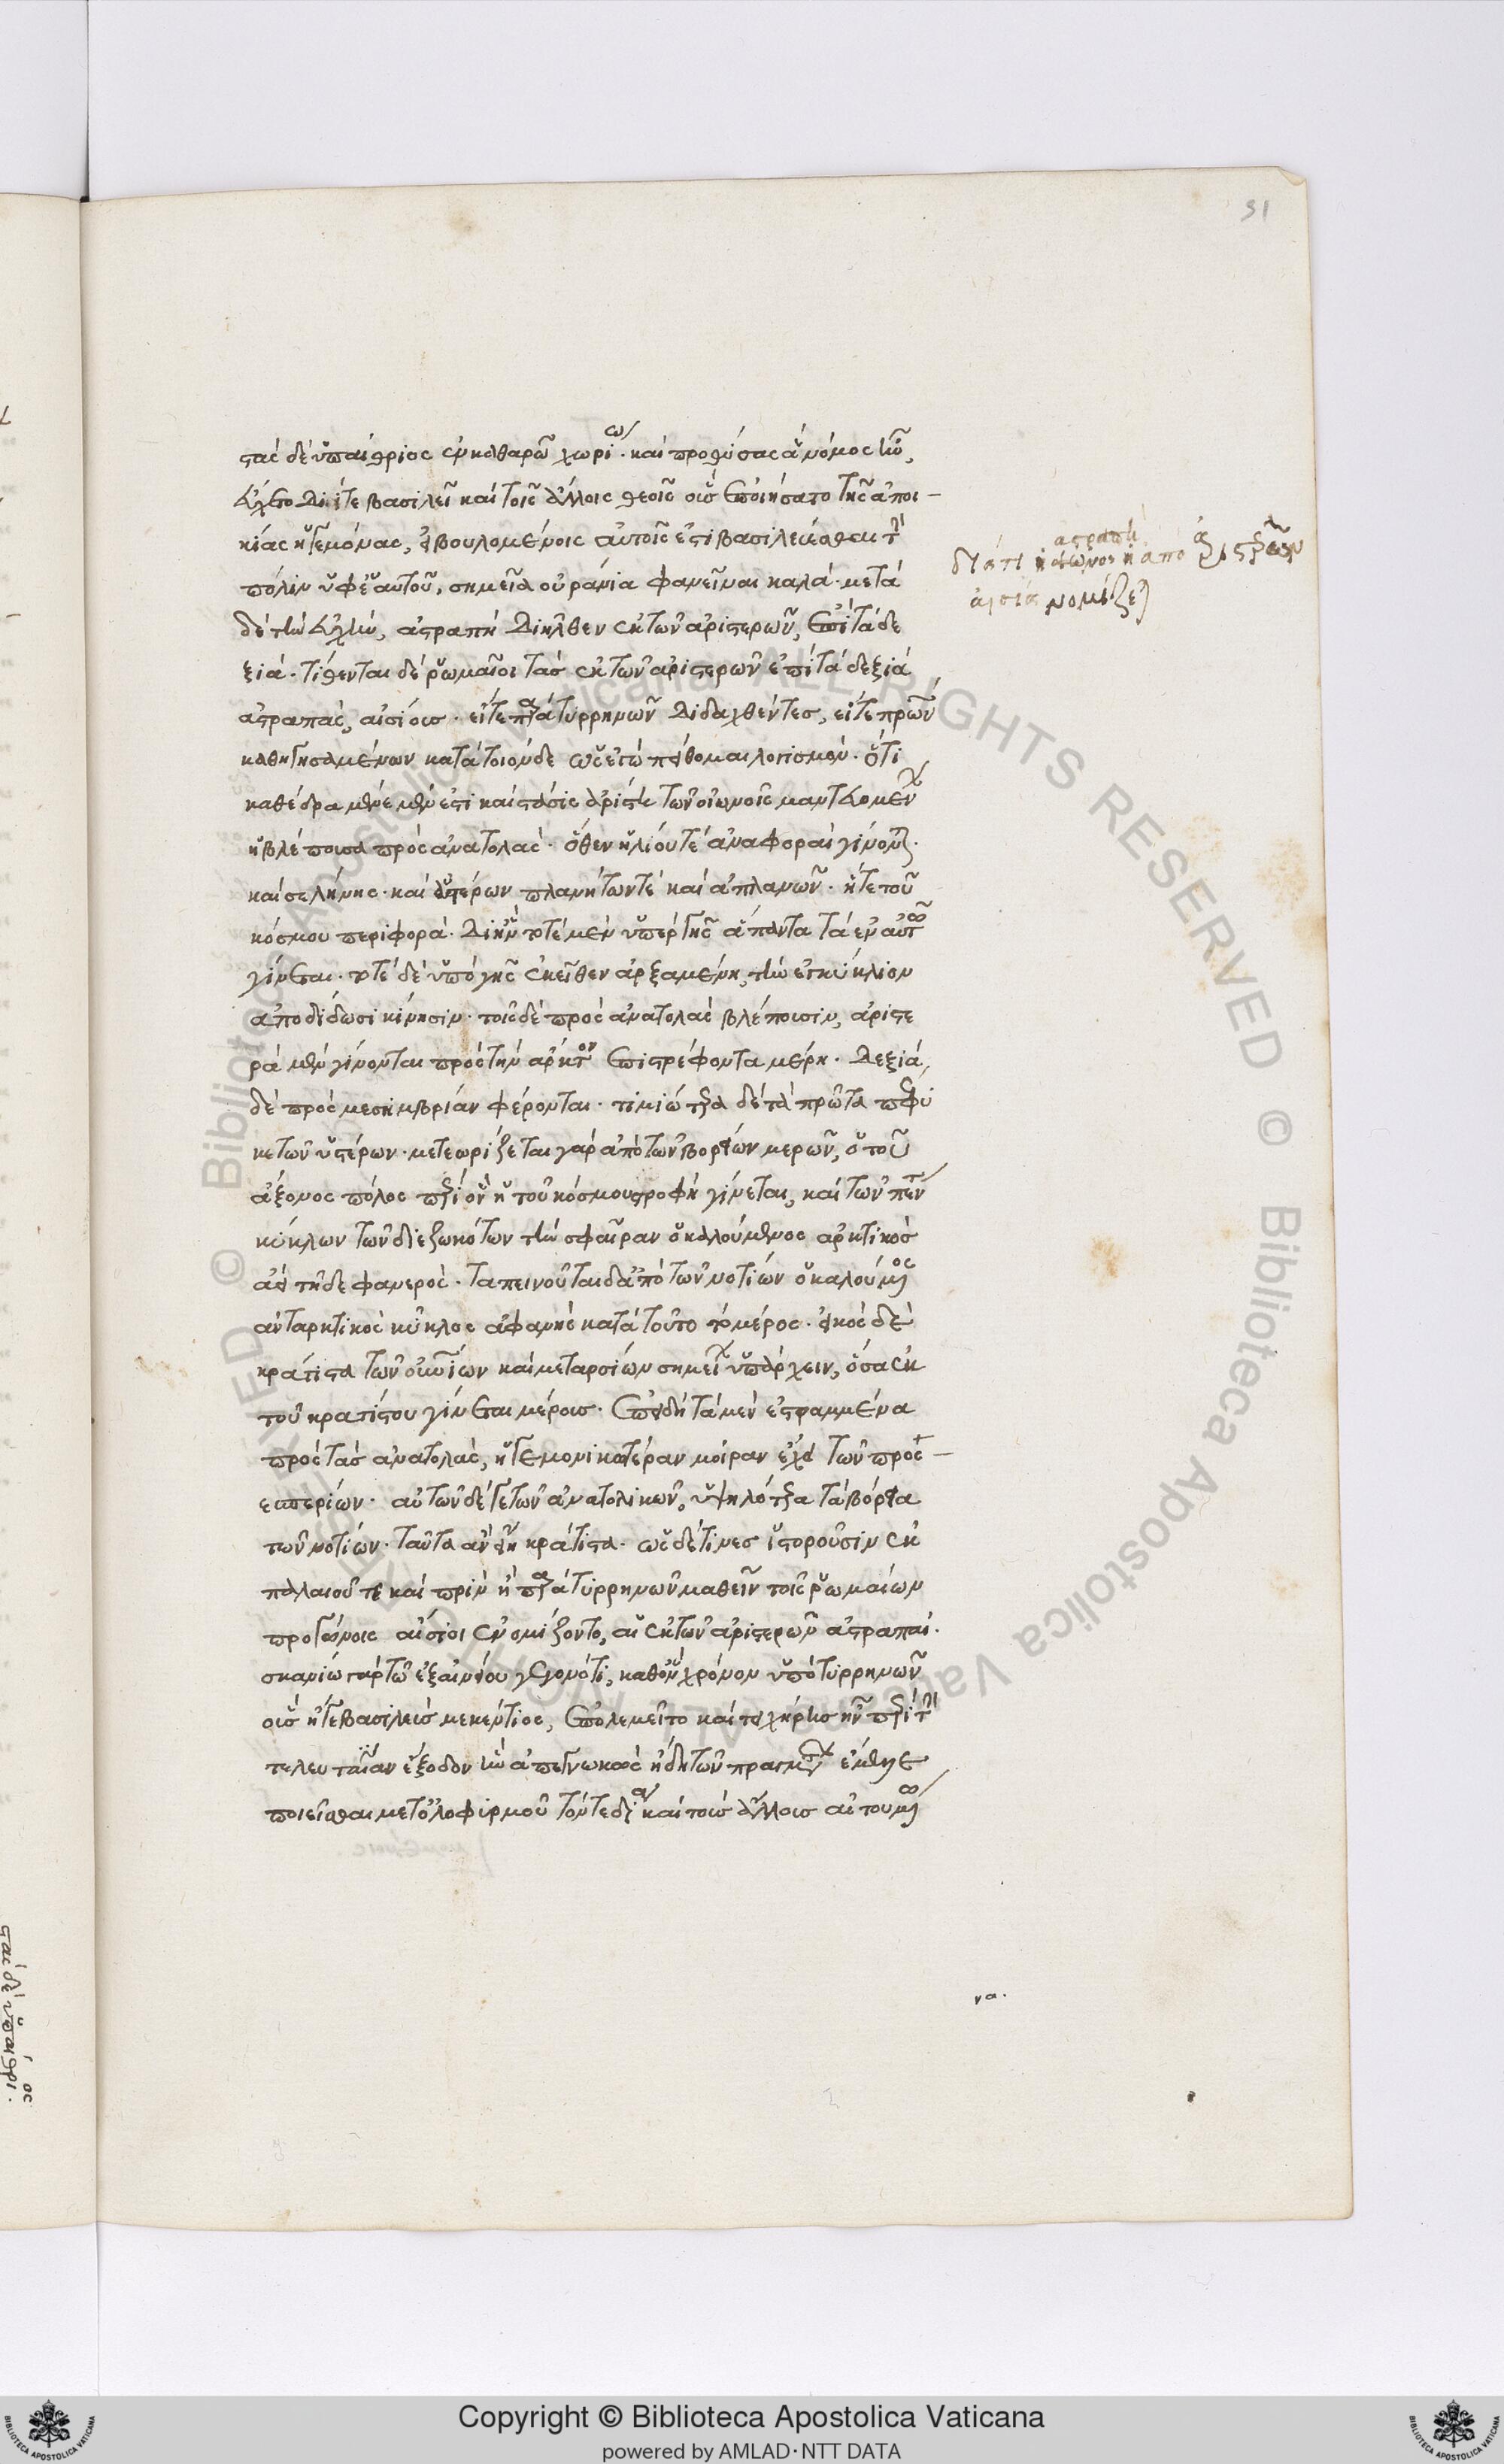 51
στὰς δὲ ὑπαίθριος ἐν καθαρῶ χωρίω. καὶ προθύσας ἃ νόμος ἦν,
εὔχετο διί τε βασιλεῖ καὶ τοῖς ἄλλοις θεοῖς οὓς ἐποιήσατο τῆς ἀποι-
κίας ἡγεμόνας, εἰ βουλομένοις αὐτοῖς ἐστὶ βασιλεύεσθαι τὴν
πόλιν ὑφ' ἑαυτοῦ, σημεῖα οὐράνια φανεῖναι καλά. μετὰ
δὲ τὴν εὐχὴν, ἀστραπὴ διῆλθεν ἐκ τῶν ἀριστερῶν, ἐπὶ τὰ δε
ξιά. τίθενται δὲ ῥωμαῖοι τὰς ἐκ τῶν ἀριστερῶν ἐπὶ τὰ δεξιὰ
ἀστραπὰς, αἰσίους. εἴτε παρὰ τυρρηνῶν διδαχθέντες, εἴτε πρῶν
καθηγησαμένων κατὰ τοιόνδε ὡς ἐγὼ πείθομαι λογισμὸν. ὅτι
καθέδρα μέν ἐστι καὶ στάσις ἀρίστη τῶν οἰωνοῖς μαντευομένων
ἡ βλέπουσα πρὸς ἀνατολὰς. ὅθεν ἡλίου τὲ ἀναφοραὶ γίνονται
καὶ σελήνης. καὶ ἀστέρων πλανήτων τὲ καὶ ἀπλανῶν. ἥ τε τοῦ
κόσμου περιφορὰ. δι' ἣν τοτὲ μὲν ὑπὲρ γῆς ἅπαντα τὰ ἐν αὐτῶ
γίνεται. τοτὲ δὲ ὑπὸ γῆς ἐκεῖθεν ἀρξαμένη, τὴν ἐγκύκλιον
ἀποδίδωσι κίνησιν. τοῖς δὲ πρὸς ἀνατολὰς βλέπουσιν, ἀριστε
ρὰ μὲν γίνονται πρὸς τὴν ἄρκτον ἐπιστρέφοντα μέρη. δεξιὰ,
δὲ πρὸς μεσημβρίαν φέρονται. τιμιώτερα δὲ τὰ πρῶτα πέφυ
κε τῶν ὑστέρων. μετεωρίζεται γὰρ ἀπὸ τῶν βορείων μερῶν, ὁ τοῦ
ἄξονος πόλος περὶ ὃν ἡ τοῦ κόσμου στροφὴ γίνεται, καὶ τῶν πέντε
κύκλων τῶν διεζωκότων τὴν σφαῖραν ὁ καλούμενος ἀρκτικὸς
ἀεὶ τῆδε φανερὸς. ταπεινοῦται δ' ἀπὸ τῶν νοτίων ὁ καλούμενος
ἀνταρκτικὸς κύκλος ἀφανὴς κατὰ τοῦτο τὸ μέρος. εἰκὸς δὲ
κράτιστα τῶν οὐρανίων καὶ μεταρσίων σημείων ὑπάρχειν, ὅσα ἐκ
τοῦ κρατίστου γίνεται μέρους. ἐπειδὴ τὰ μὲν ἐστραμμένα
πρὸς τὰς ἀνατολὰς, ἡγεμονικωτέραν μοῖραν ἔχει τῶν προς-
εσπερίων. αὐτῶν δέ γε τῶν ἀνατολικῶν, ὑψηλότερα τὰ βόρεια
τῶν νοτίων. ταῦτα ἂν εἴη κράτιστα. ὡς δέ τινες ἱστοροῦσιν ἐκ
παλαιοῦ τε καὶ πρὶν ἢ παρὰ τυρρηνῶν μαθεῖν τοῖς ῥωμαίων
προγόνοις αἴσιοι ἐνομίζοντο, αἱ ἐκ τῶν ἀριστερῶν ἀστραπαί.
ἀσκανίω γὰρ τῶ ἐξ αἰνείου γεγονότι, καθ' ὃν χρόνον ὑπὸ τυρρηνῶν
οὓς ἦγε βασιλεὺς μεκέντιος, ἐπολεμεῖτο καὶ τειχήρης ἦν περὶ τὴν
τελευταίαν ἔξοδον ἣν ἀπεγνωκὼς ἤδη τῶν πραγμάτων ἔμελλε
ποιεῖσθαι μετ' ὀλοφυρμοῦ τόν τε δία καὶ τοὺς ἄλλους αἰτουμένω
διατί
ἀστραπὴ
ἀπὸ ἀριστερῶν
αἰσία νομίζει
να.
στὰς δὲ ὑπαίθριος.